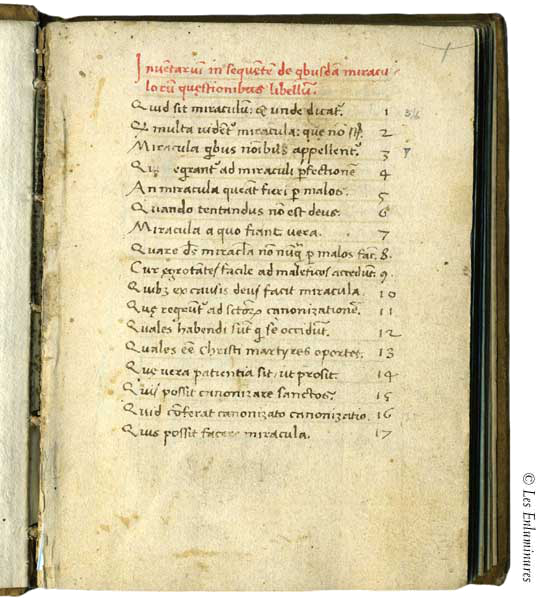 Inventarum in sequentē de qbusdā miracu
lorū questionibus libellum.
Quid sit miraculum: & unde dicat. 1
Q multa uidēt miracula: que nō st. 2
Miracula qbus noībus appellent. 3
egrant ad miraculi pfectionē 4
An miracula queāt fieri p malos. 5
Quando tentandus non est deus. 6
Miracula a quo fiant uera. 7
Quare ds miracla nō nūq p malos fac. 8.
Cur egrotātes facile ad maleficos accedunt. 9.
Quibz ex causis deus facit miracula. 10
Que reqrunt ad sctorz canonizationē. 11
Quales habendi sūt q se occidūt. 12
Quales eē Christi martyres oportet. 13
Que vera patientia sit, ut prosit. 14
Quis possit canonizare sanctos. 15
Quid cōferat canonizato canonizatio. 16
Quis possit facere miracula. 17
© Les Enluminures